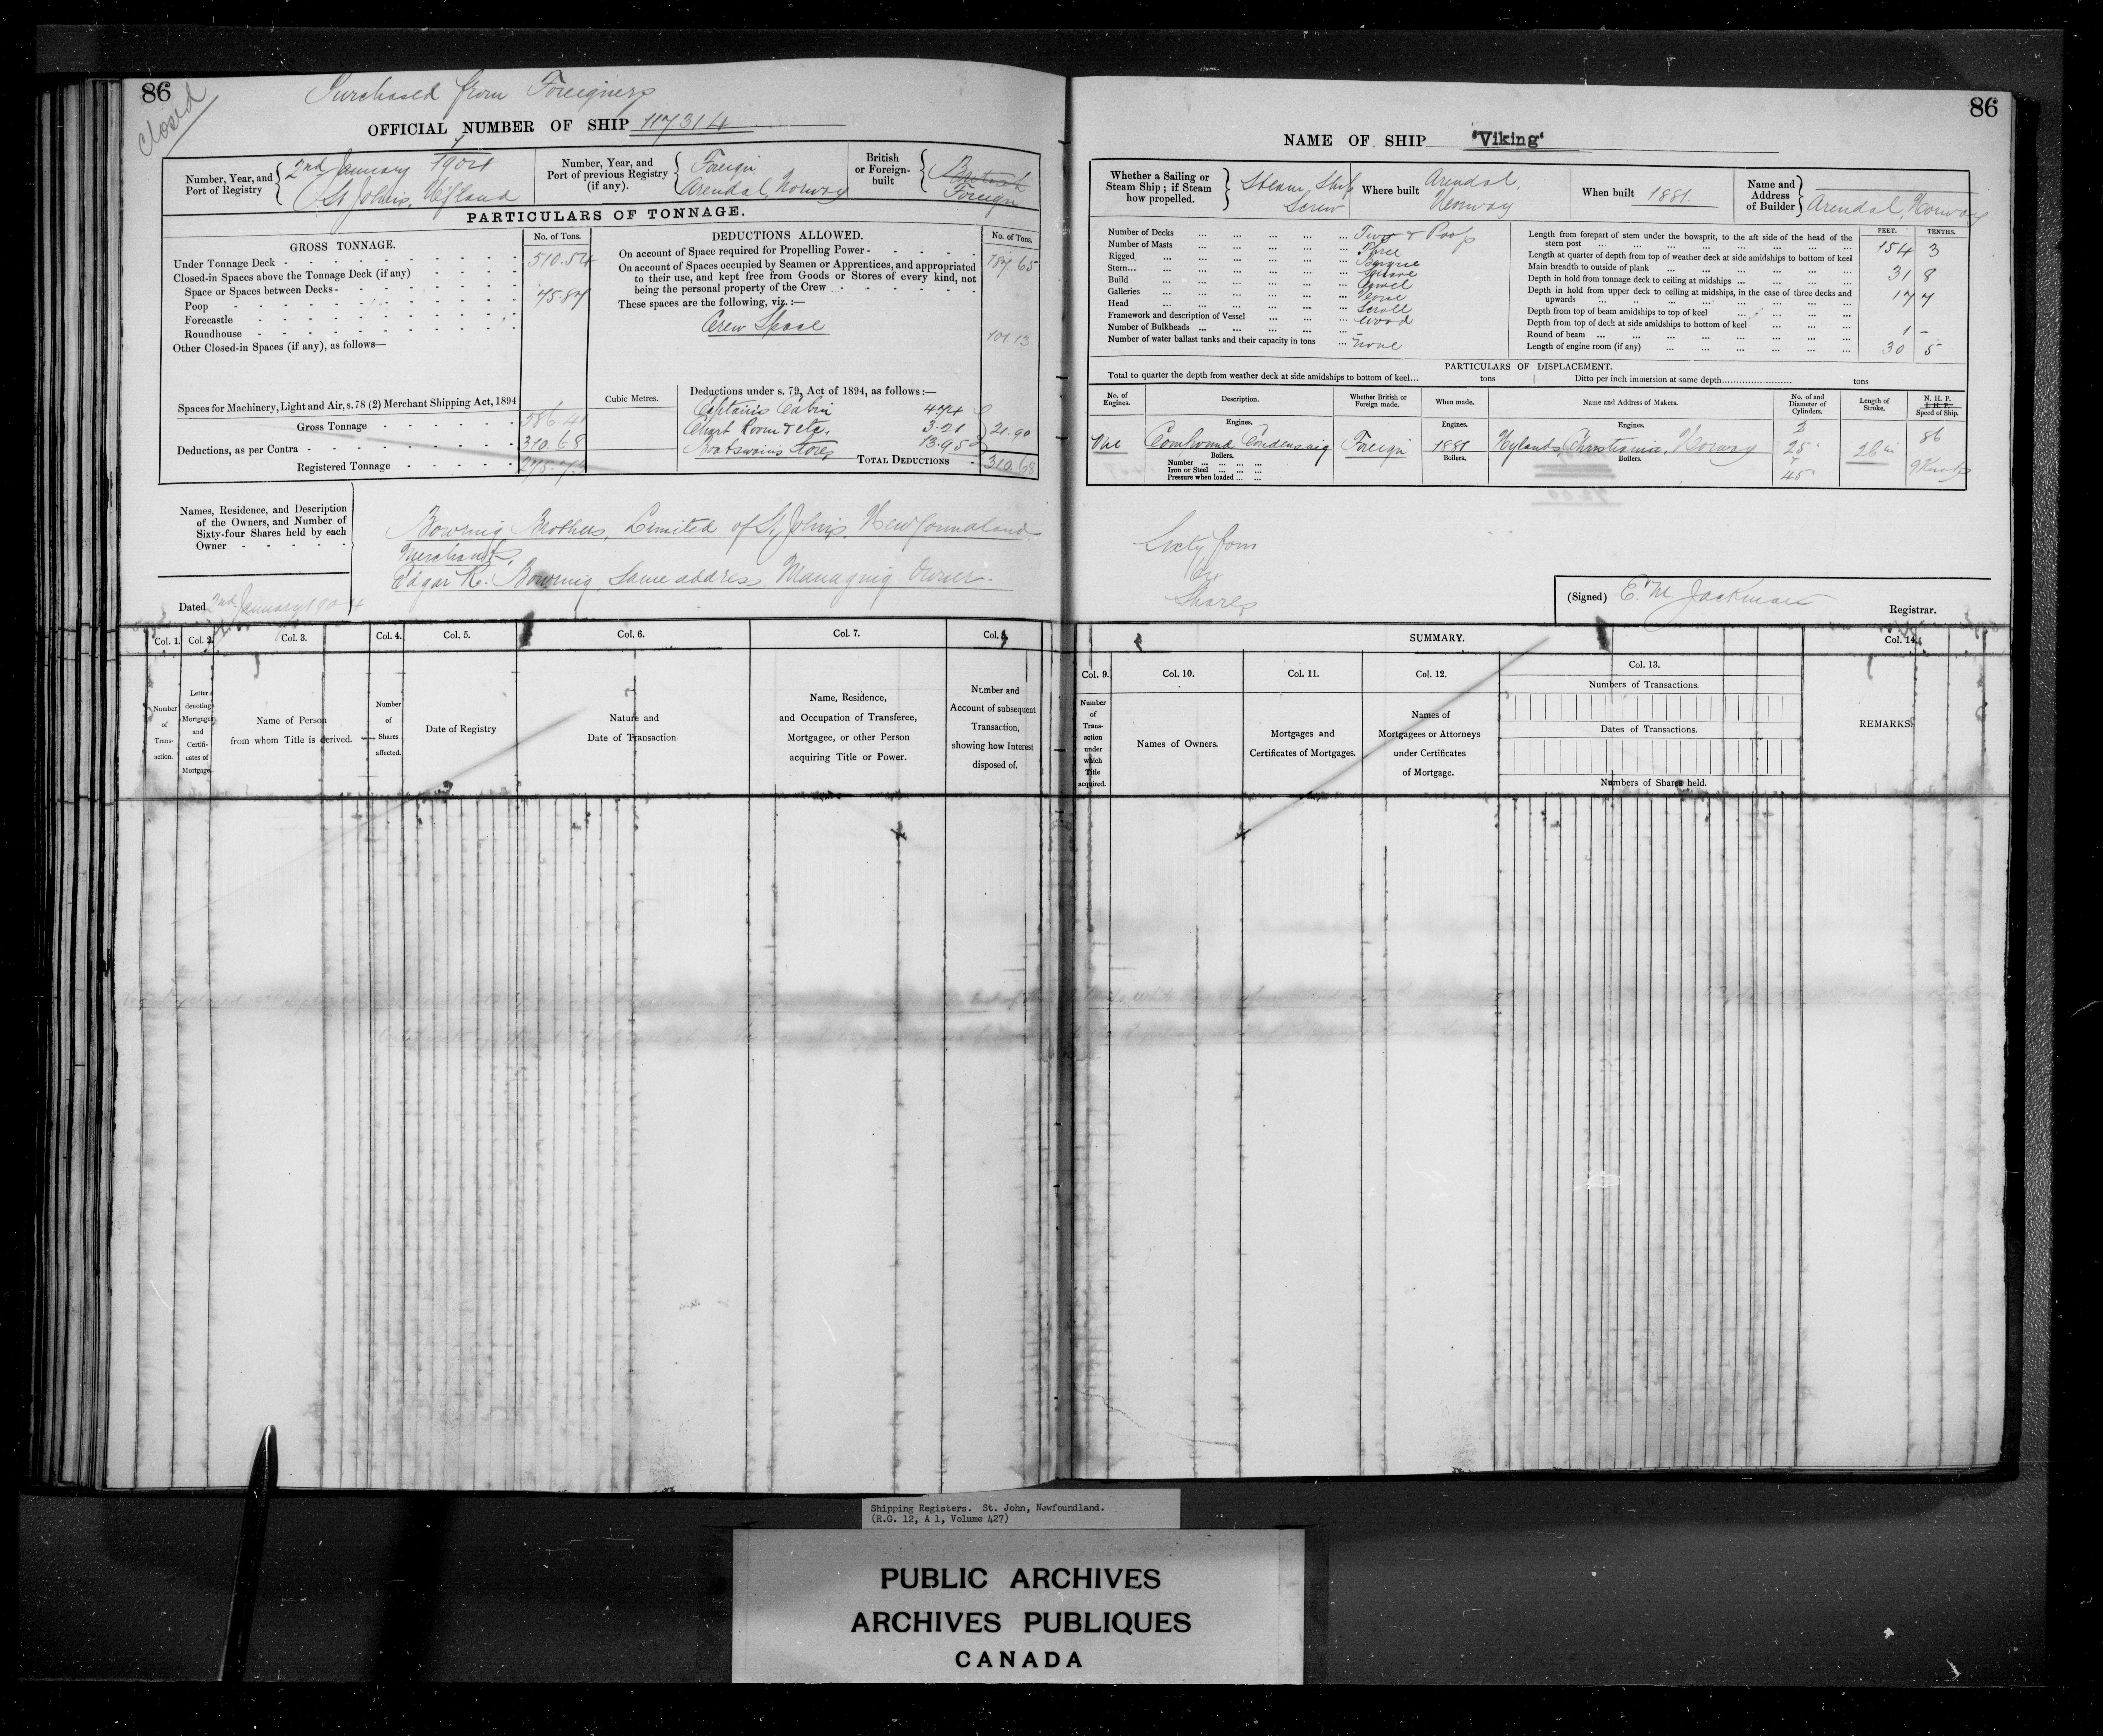 86
closed
Purchased from Foreigners
OFFICIAL NUMBER OF SHIP 117.314
Number, Year, and Port of Registry
2nd January 1904
St John's, Nfland
Number, Year, and Port of previous Registry (if any).
Foreign
Arendal, Norway
British or Foreign-built
British
Foreign
PARTICULARS OF TONNAGE.
GROSS TONNAGE.
No. of Tons.
Under Tonnage Deck 510.54
Closed-in Spaces above the Tonnage Deck (if any)
Space or Spaces between Decks
Poop 75.87
Forecastle
Roundhouse
Other Closed-in Spaces (if any), as follows—
Spaces for Machinery, Light and Air, s. 78 (2) Merchant Shipping Act, 1894
Gross Tonnage 586.41
Deductions, as per Contra 310.68
Registered Tonnage 275.73
DEDUCTIONS ALLOWED.
No. of Tons.
On account of Space required for Propelling Power 187.65
On account of Spaces occupied by Seamen or Apprentices, and appropriated
to their use, and kept free from Goods or Stores of every kind, not
being the personal property of the Crew
These spaces are the following, viz. :—
Crew Space
101.13
Cubic Metres.
Deductions under s. 79, Act of 1894, as follows :—
Captain's Cabin 4.74
Chart Room & etc. 3.21
Boatswains Stores 13.95
21.90
TOTAL DEDUCTIONS 310.68
Names, Residence, and Description
of the Owners, and Number of
Sixty-four Shares held by each
Owner
Bowring Brothers, Limited of St John's, Newfoundland
Merchants,
Edgar R. Bowring, same address, Managing Owner.
Dated 2nd January 1904
Col. 1. Col. 2. Col. 3. Col. 4. Col. 5. Col. 6. Col. 7. Col. 8.
Number of Transaction.
Letter denoting Mortgage and Certificates of Mortgage.
Name of Person
from whom Title is derived.
Number of Shares affected.
Date of Registry
Nature and
Date of Transaction.
Name, Residence,
and Occupation of Transferee,
Mortgagee, or other Person
acquiring Title or Power.
Number and
Account of subsequent
Transaction,
showing how Interest
disposed of.
86
NAME OF SHIP "Viking"
Whether a Sailing or
Steam Ship ; if Steam
how propelled.
Steam Ship
Screw
Where built
Arendal,
Norway
When built 1881.
Name and
Address
of Builder
Arendal, Norway
Number of Decks Two & Poop
Number of Masts Three
Rigged Barque
Stern Square
Build Carvel
Galleries None
Head Scroll
Framework and description of Vessel Wood
Number of Bulkheads –
Number of water ballast tanks and their capacity in tons none
FEET. TENTHS.
Length from forepart of stem under the bowsprit, to the aft side of the head of the
stern post 154 3
Length at quarter of depth from top of weather deck at side amidships to bottom of keel
Main breadth to outside of plank 31 8
Depth in hold from tonnage deck to ceiling at midships 17 7
Depth in hold from upper deck to ceiling at midships, in the case of three decks and
upwards
Depth from top of beam amidships to top of keel
Depth from top of deck at side amidships to bottom of keel
Round of beam 1 –
Length of engine room (if any) 30 5
PARTICULARS OF DISPLACEMENT.
Total to quarter the depth from weather deck at side amidships to bottom of keel... tons Ditto per inch immersion at same depth... tons
No. of Engines.
Description.
Whether British or Foreign made.
When made.
Name and Address of Makers.
No. of and Diameter of Cylinders.
Length of Stroke.
N. H. P.
I. H. P.
Speed of Ship.
Engines. Engines. Engines.
One Compound Condensing Foreign 1881 Nylands, Christiania, Norway
2
25"
45"
26 in
86
9 Knots
Boilers. Boilers. Boilers.
Number
Iron or Steel
Pressure when loaded
Sixty four
64
Shares
(Signed) E. M. Jackman
Registrar.
SUMMARY.
Col. 9. Col. 10. Col. 11. Col. 12. Col. 13. Col. 14.
Number of Transaction under which Title acquired.
Names of Owners.
Mortgages and
Certificates of Mortgages.
Names of
Mortgagees or Attorneys
under Certificates
of Mortgage.
Numbers of Transactions.
Dates of Transactions.
Numbers of Shares held.
REMARKS.
Shipping Registers. St. John, Newfoundland.
(R.G. 12, A 1, Volume 427)
PUBLIC ARCHIVES
ARCHIVES PUBLIQUES
CANADA